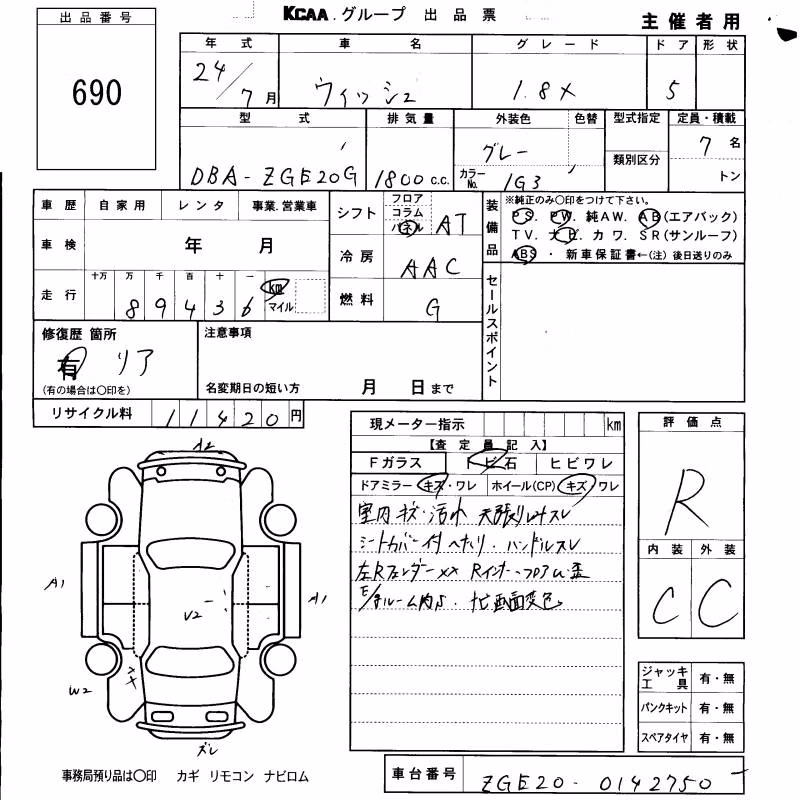 KCAA.グループ 出品票
主催者用
出品番号
690
年式 車名 グレード ドア 形状
24/7月 ウィッシュ 1.8X 5
型式 排気量 外装色 色替 型式指定 定員・積載
DBA-ZGE20G 1800c.c. グレー 7名
カラーNo. 1G3 類別区分 トン
車歴 自家用 レンタ 事業.営業車
車検 年 月
走行 十万 万 千 百 十 一
89436 km マイル
シフト フロア コラム パネル AT
冷房 AAC
燃料 G
装備品
※純正のみ〇印をつけて下さい。
PS. PW. 純AW. AB(エアバック)
TV. ナビ. カワ. SR(サンルーフ)
ABS ・ 新車保証書←(注)後日送りのみ
セールスポイント
修復歴 箇所
有 リア
(有の場合は〇印を)
注意事項
名変期日の短い方 月 日まで
リサイクル料 11420円
現メーター指示 km
【査定員記入】
Fガラス トビ石 ヒビワレ
ドアミラー キズ・ワレ ホイール(CP) キズ ワレ
室内キズ・汚れ 天張りレナスレ
シートカバー付 ヘタリ. ハンドルスレ
左Rフェンダー××
ルーム内S. ナビ画面変色
評価点
R
内装 外装
C C
A2
A1
A1
U2
W2
ズレ
ジャッキ工具 有・無
パンクキット 有・無
スペアタイヤ 有・無
事務局預り品は〇印 カギ リモコン ナビロム
車台番号 ZGE20-0142750